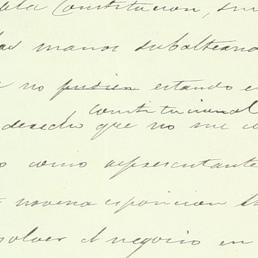 la Constitucion, sin
las manos subalternas
no pudiera estando en
constitucional
derecho que no me co
o como representante
novena esposicion
solver el negocio en